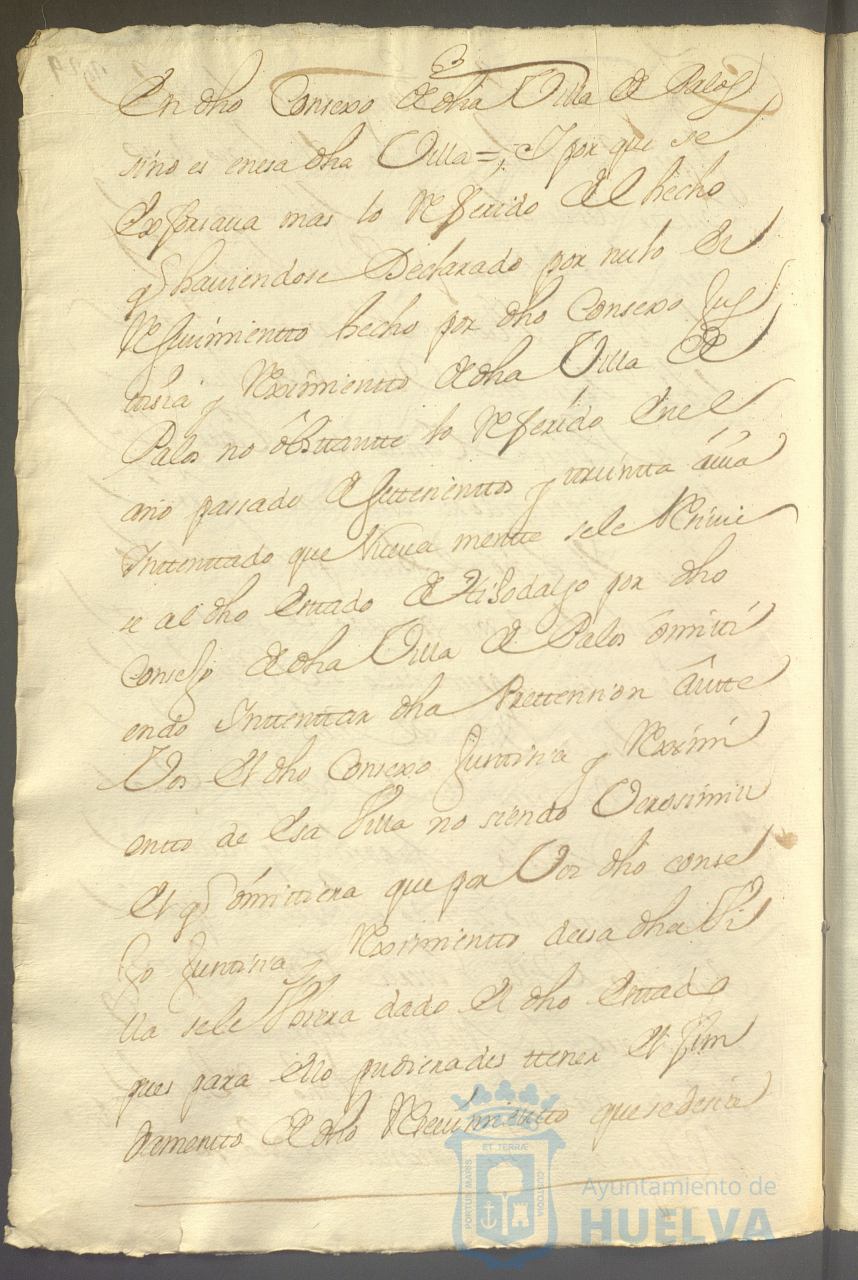 En dho Consexo de dha Villa de Palos
sino es en esa dha Villa = Y por que se
Exforsaua mas lo Referido de el hecho
q haviendose Declarado por nulo el
Resciuimientto hecho por dho Consexo Jus
tisia y Reximientto de dha Villa de
Palos no obsttantte lo Referido En el
año passado de settecienttos y treintta auia
Inttenttado que Nueua mentte se le Reciuie
se al dho Esttado de Hisodalgo por dho
Consejo de dha Villa de Palos omitti
endo Inttenttar dha Prettension Antte
Vos El dho Consexo Justisia y Reximi
entto de Esa Villa no siendo Verosimil
El q omittiera que por Vos dho conse
Jo Justisia y Reximientto de esa dha Vi
lla se le Vbiera dado El dho Esttado
pues para ello pudierades ttener El fun
damentto de dho Reciuimientto que se desia
Ayuntamiento de
HUELVA
PORTUS MARIS
ET TERRÆ
CUSTODIA